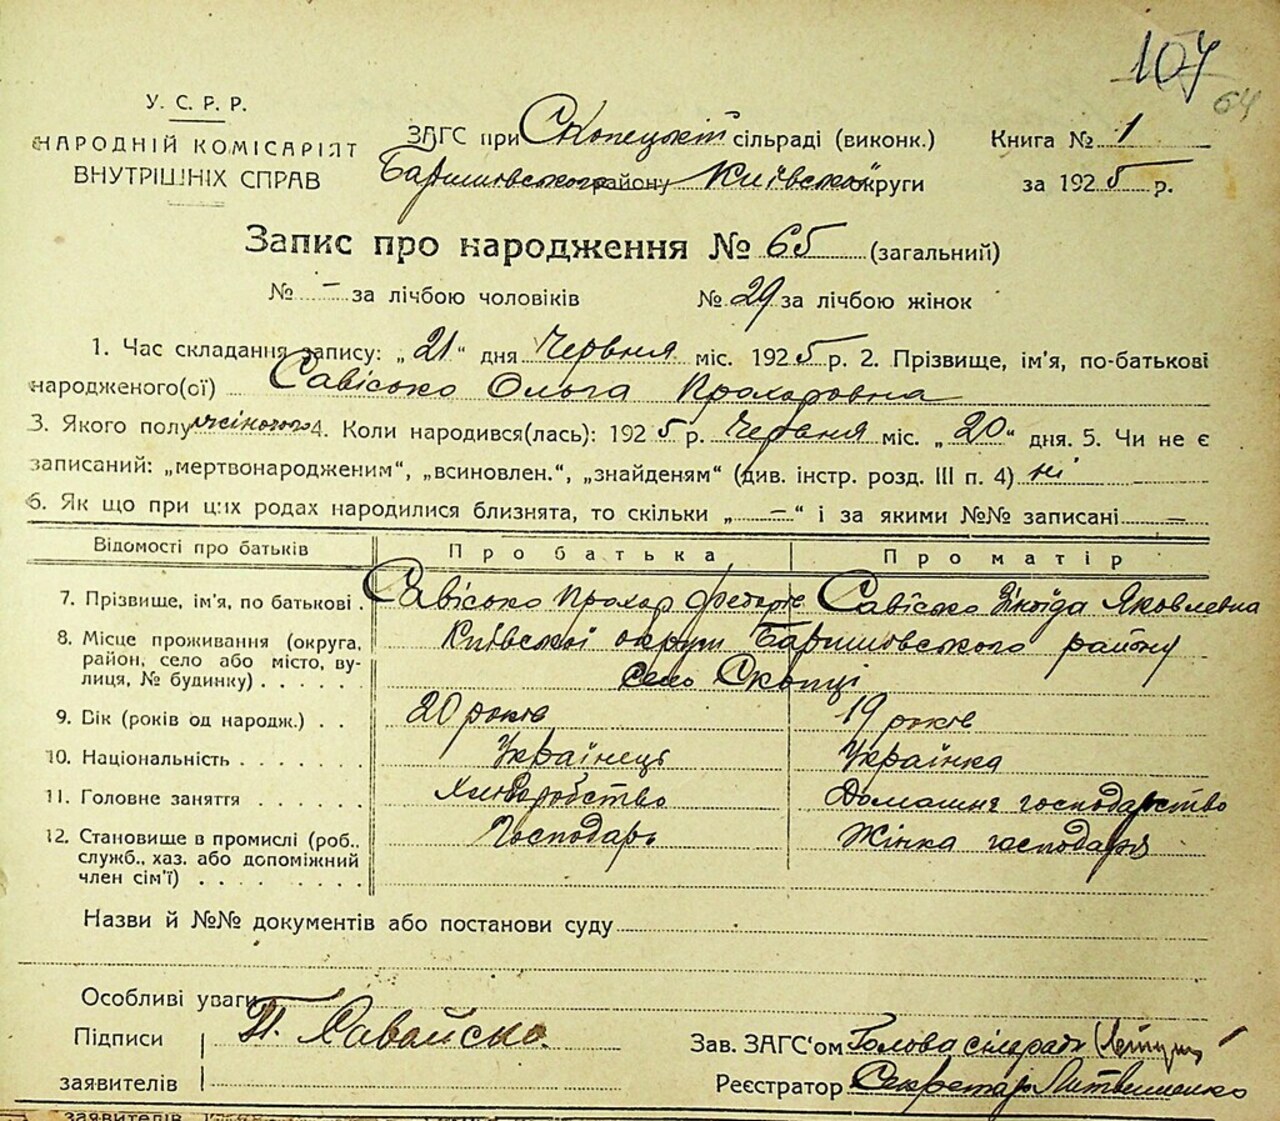 107
64
У. С. Р. Р.
НАРОДНІЙ КОМІСАРІЯТ
ВНУТРІШНІХ СПРАВ
ЗАГС при Скопецькій сільраді (виконк.)
Баришовського району Київської округи
Книга № 1
за 1925 р.
Запис про народження № 65 (загальний)
№ - за лічбою чоловіків № 29 за лічбою жінок
1. Час складання запису: „21" дня Червня міс. 1925 р. 2. Прізвище, ім'я, по-батькові
народженого(ої) Савісько Ольга Прохоровна
3. Якого полу жіночого 4. Коли народився(лась): 1925 р. Червня міс. „20" дня. 5. Чи не є
записаний: „мертвонародженим", „всиновлен.", „знайденям" (див. інстр. розд. III п. 4) ні
6. Як що при цих родах народилися близнята, то скільки „-" і за якими №№ записані -
Відомості про батьків Про батька Про матір
7. Прізвище, ім'я, по батькові . Савісько Прохор Савісько Яковлевна
8. Місце проживання (округа, Київської округи Баришовського району
район, село або місто, ву- село Скопці
лиця, № будинку) . . . . . .
9. Вік (років од народж.) . . 20 років 19 років
10. Національність . . . . . . . Українець Українка
11. Головне заняття . . . . . . Хліборобство Домашнє господарство
12. Становище в промислі (роб., Господарь Жінка господаря
служб., хаз. або допоміжний
член сім'ї) . . . . . . . .
Назви й №№ документів або постанови суду
Особливі уваги
Підписи П. Савайско.
заявителів
Зав. ЗАГС'ом Голова сільради
Реєстратор Секретар Литвиненко
заявителів